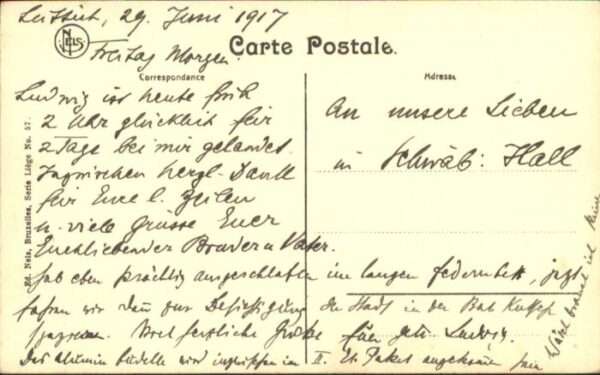 29. Juni 1917
NELS
Freitag Morgen.
Carte Postale.
Correspondance
Adresse
Ludwig ist heute früh
2 Uhr glücklich für
2 Tage bei mir gelandet.
Inzwischen herzl. Dank
für Eure l. Zeilen
u. viele Grüsse Euer
Euchliebender Bruder u. Vater.
An unsere Lieben
in Schwäb: Hall
Ed. Nels, Bruxelles, Serie Liége No. 57.
hab eben prächtig ausgeschlafen im langen Federnbett, jetzt
fahren wir dann zur Besichtigung der Stadt in der
herzliche Grüße Ludwig.
Das wird inzwischen im II. Paket angekommen sein